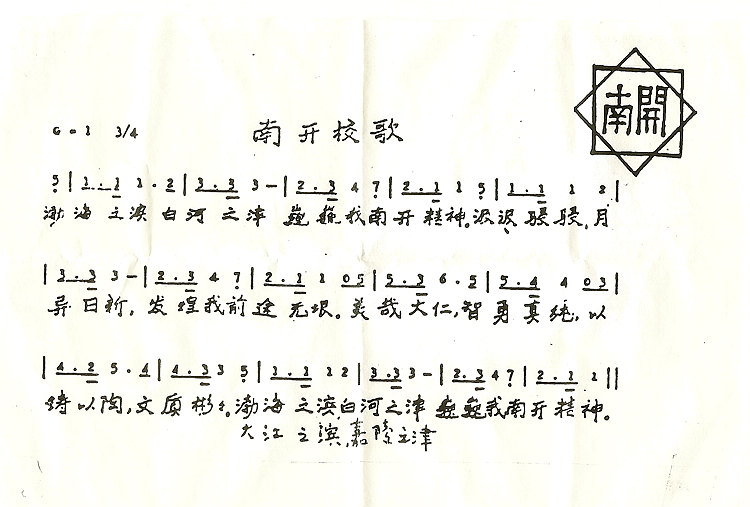 南開
G = 1 3/4 南开校歌
5 | 1.1 1.2 | 3.3 3 – | 2.3 4 7 | 2.1 1 5 | 1.1 1 2 |
渤海之滨白河之津 巍巍我南开精神。汲汲骎骎,月
| 3.3 3 – | 2.3 4 7 | 2.1 1 05 | 5.3 6.5 | 5.4 4 03 |
异日新,发煌我前途无垠。美哉大仁,智勇真纯,以
| 4.2 5.4 | 4.3 3 5 | 1.1 1 2 | 3.3 3 – | 2.3 4 7 | 2.1 1 ||
铸以陶,文质彬々。渤海之滨,白河之津 巍巍我南开精神。
大江之滨,嘉陵之津